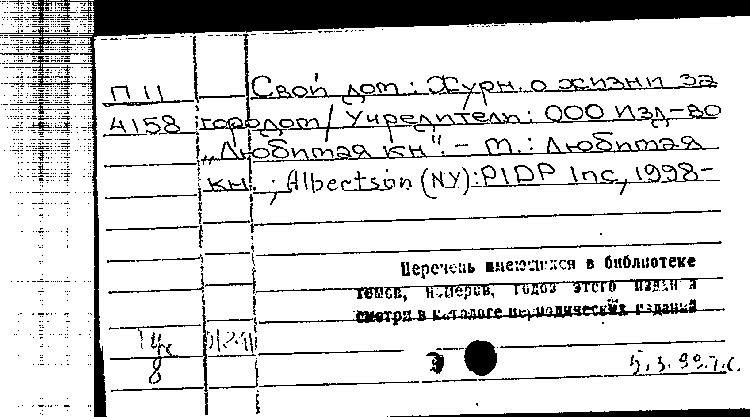 П 11 Свой дом: Журн. о жизни за
4158 городом / Учредители: ООО Изд-во
„Любимая кн". - М.: Любимая
кн.; Albertson (NY): PIDP Inc, 1998-
Перечень имеющихся в библиотеке
томов, номеров, годов этого издания
смотри в каталоге периодических изданий
8